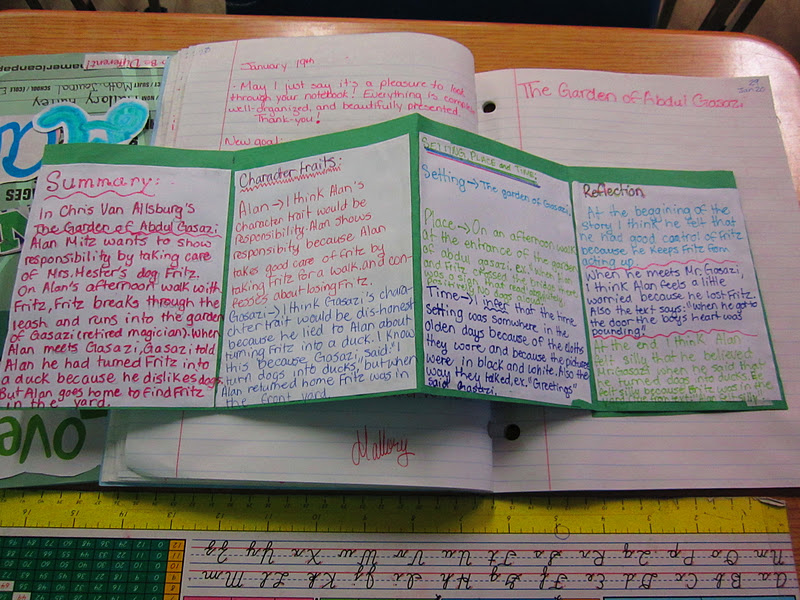 January 19th
- May I just say it's a pleasure to look
through your notebook! Everything is
well-organized, and beautifully presented.
Thank-you!
New goal:
The Garden of Abdul Gasazi
Summary:
In Chris Van Allsburg's
The Garden of Abdul Gasazi
Alan Mitz wants to show
responsibility by taking care
of Mrs. Hester's dog Fritz.
On Alan's afternoon walk with
Fritz, Fritz breaks through the
leash and runs into the garden
of Gasazi (retired magician). When
Alan meets Gasazi, Gasazi told
Alan he had turned Fritz into
a duck because he dislikes dogs.
But Alan goes home to find Fritz
in the yard.
Character traits:
Alan → I think Alan's
character trait would be
responsibility. Alan shows
responsibity because Alan
takes good care of fritz by
taking Fritz for a walk, and con-
fesses about losing Fritz.
Gasazi → I think Gasazi's chara-
chter trait would be dis-honest
because he lied to Alan about
turning Fritz into a duck. I know
this because Gasazi said: "I
turn dogs into ducks," but when
Alan returned home Fritz was in
the front yard.
SETTING PLACE and TIME:
Setting → The garden of Gasazi
Place → On an afternoon walk
at the entrance of the garden
of abdul gasazi. ex.
and Fritz crossed the bridge
was a sign that read absolutely
Time → I infer that the time
setting was somewhere in the
olden days because of the cloths
they wore and because the pictures
were in black and white. Also the
way they talked, ex. "Greetings"
said Ghasazi.
Reflection
At the beggining of the
story I think he felt that
he had good control of fritz
because he keeps Fritz from
acting up.
When he meets Mr. Gasazi,
I think Alan feels a little
worried because he lost Fritz.
Also the text says: "when he got to
the door the boys heart was
pounding".
At the end I think Alan
felt silly that he believed
Mr. Gasazi when he said that
he turned dogs into ducks. He
felt silly because Fritz was in the
Mallory